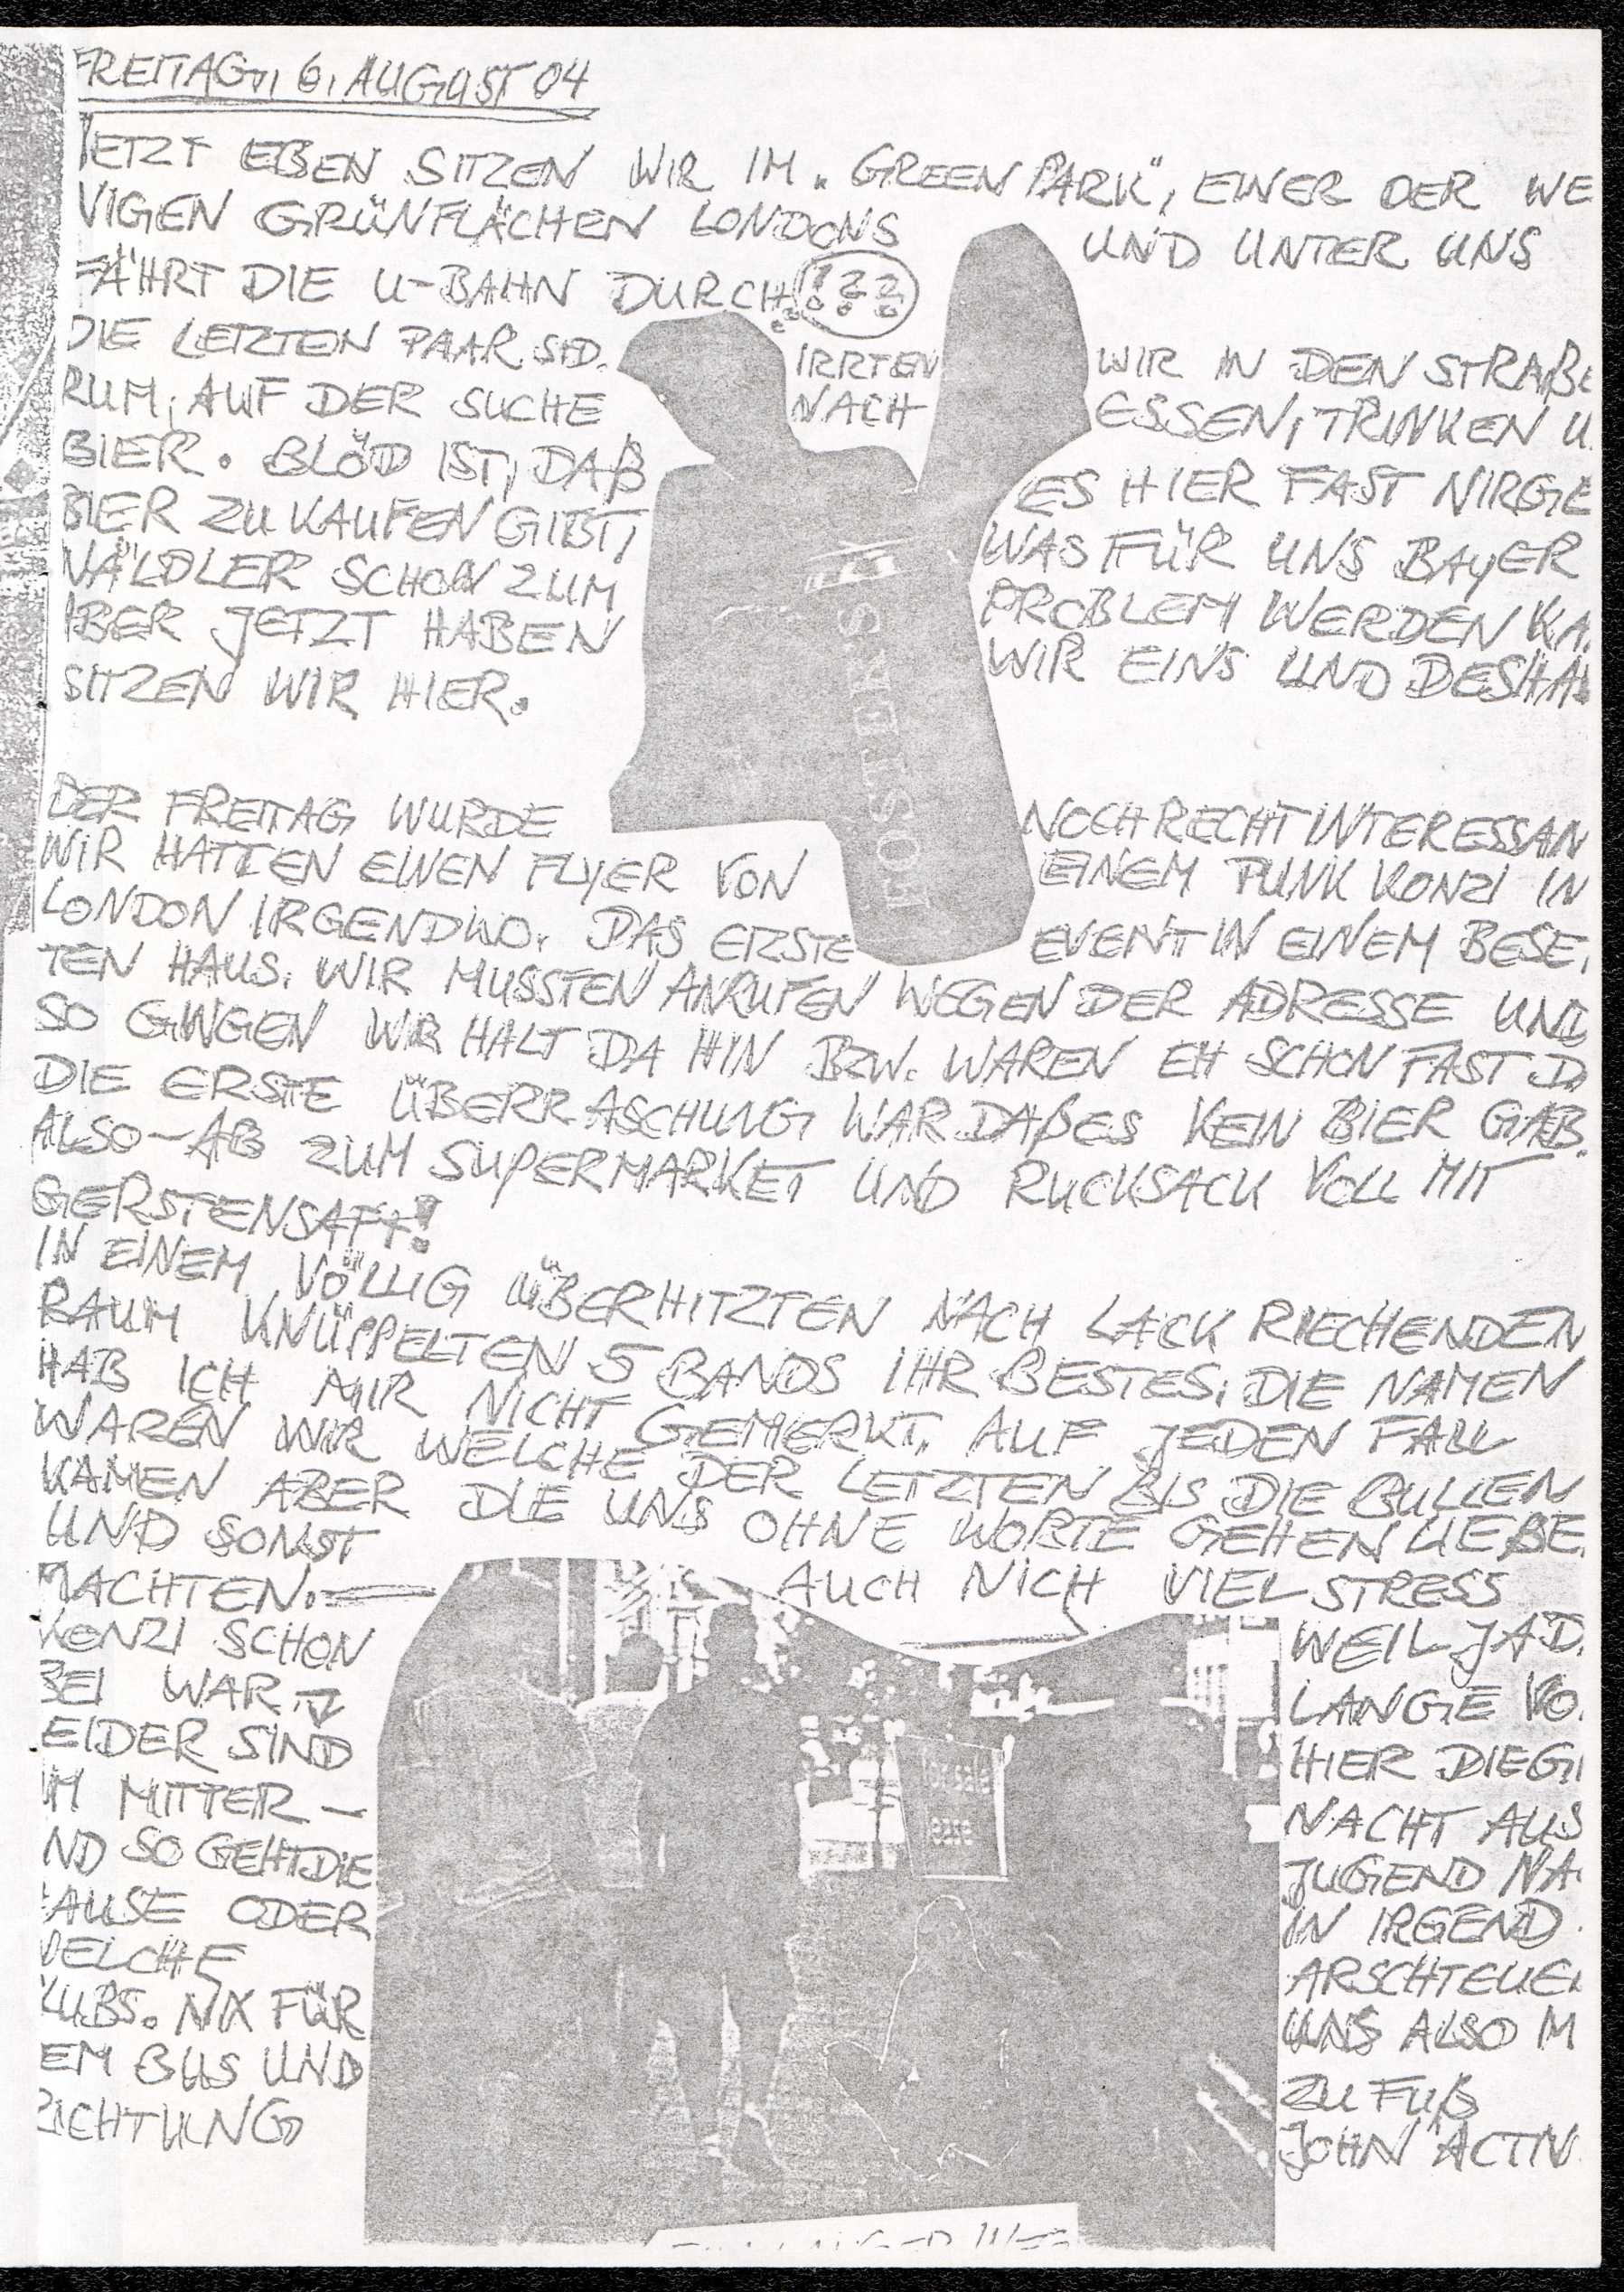 FREITAG, 6. AUGUST 04
JETZT EBEN SITZEN WIR IM "GREEN PARK", EINER DER WE
NIGEN GRÜNFLÄCHEN LONDONS UND UNTER UNS
FÄHRT DIE U-BAHN DURCH. !??
DIE LETZTEN PAAR STD. IRRTEN WIR IN DEN STRAßE
RUM, AUF DER SUCHE NACH ESSEN, TRINKEN U.
BIER. BLÖD IST, DAß ES HIER FAST NIRGE
BIER ZU KAUFEN GIBT, WAS FÜR UNS BAYER
WÄLDLER SCHON ZUM PROBLEM WERDEN KA
ABER JETZT HABEN WIR EINS UND DESHAL
SITZEN WIR HIER.
FOSTER'S
DER FREITAG WURDE NOCH RECHT INTERESSAN
WIR HATTEN EINEN FLYER VON EINEM PUNK KONZI IN
LONDON IRGENDWO. DAS ERSTE EVENT IN EINEM BESE
TEN HAUS. WIR MUSSTEN ANRUFEN WEGEN DER ADRESSE UND
SO GINGEN WIR HALT DA HIN BZW. WAREN EH SCHON FAST D
DIE ERSTE ÜBERRASCHUNG WAR DAß ES KEIN BIER GAB.
ALSO - AB ZUM SUPERMARKET UND RUCKSACK VOLL MIT
GERSTENSAFT!
IN EINEM VÖLLIG ÜBERHITZTEN NACH LACK RIECHENDEN
RAUM KNÜPPELTEN 5 BANDS IHR BESTES. DIE NAMEN
HAB ICH MIR NICHT GEMERKT. AUF JEDEN FALL
WAREN WIR WELCHE DER LETZTEN BIS DIE BULLEN
KAMEN ABER DIE UNS OHNE WORTE GEHEN LIEßE
UND SONST AUCH NICH VIEL STRESS
MACHTEN. WEIL JA D
KONZI SCHON LANGE VO
BEI WAR
LEIDER SIND HIER DIE G
UM MITTER- NACHT AUS
UND SO GEHT DIE JUGEND NA
HAUSE ODER IN IRGEND
WELCHE ARSCHTEUE
KLUBS. NIX FÜR UNS ALSO M
EM BUS UND ZU FUß
RICHTUNG JOHN ACTIV
for sale
LANGER WEG